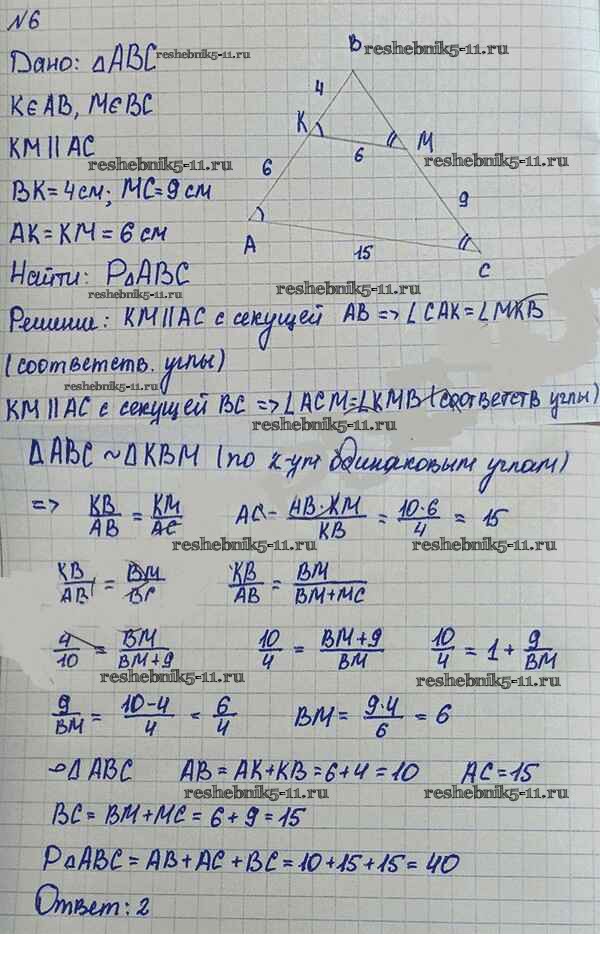 №6
Дано: △ABC reshebnik5-11.ru
K∈AB, M∈BC
KM || AC
reshebnik5-11.ru
BK=4см; MC=9см
AK=KM=6см
Найти: P△ABC
reshebnik5-11.ru
B reshebnik5-11.ru
4
K
M
6
reshebnik5-11.ru
6
9
A
15
C
reshebnik5-11.ru
Решение: KM||AC с секущей AB => ∠CAK=∠MKB
(соответств. углы)
reshebnik5-11.ru
KM||AC с секущей BC => ∠ACM=∠KMB (соответств углы)
reshebnik5-11.ru
△ABC ~ △KBM (по 2-ум одинаковым углам)
=> KB/AB = KM/AC AC = AB·KM/KB = 10·6/4 = 15
reshebnik5-11.ru reshebnik5-11.ru
KB/AB = BM/BC KB/AB = BM/BM+MC
4/10 = BM/BM+9 10/4 = BM+9/BM 10/4 = 1 + 9/BM
reshebnik5-11.ru reshebnik5-11.ru
9/BM = 10-4/4 = 6/4 BM = 9·4/6 = 6
△ABC AB = AK+KB = 6+4 = 10 AC = 15
reshebnik5-11.ru reshebnik5-11.ru
BC = BM+MC = 6+9 = 15
P△ABC = AB+AC+BC = 10+15+15 = 40
Ответ: 2